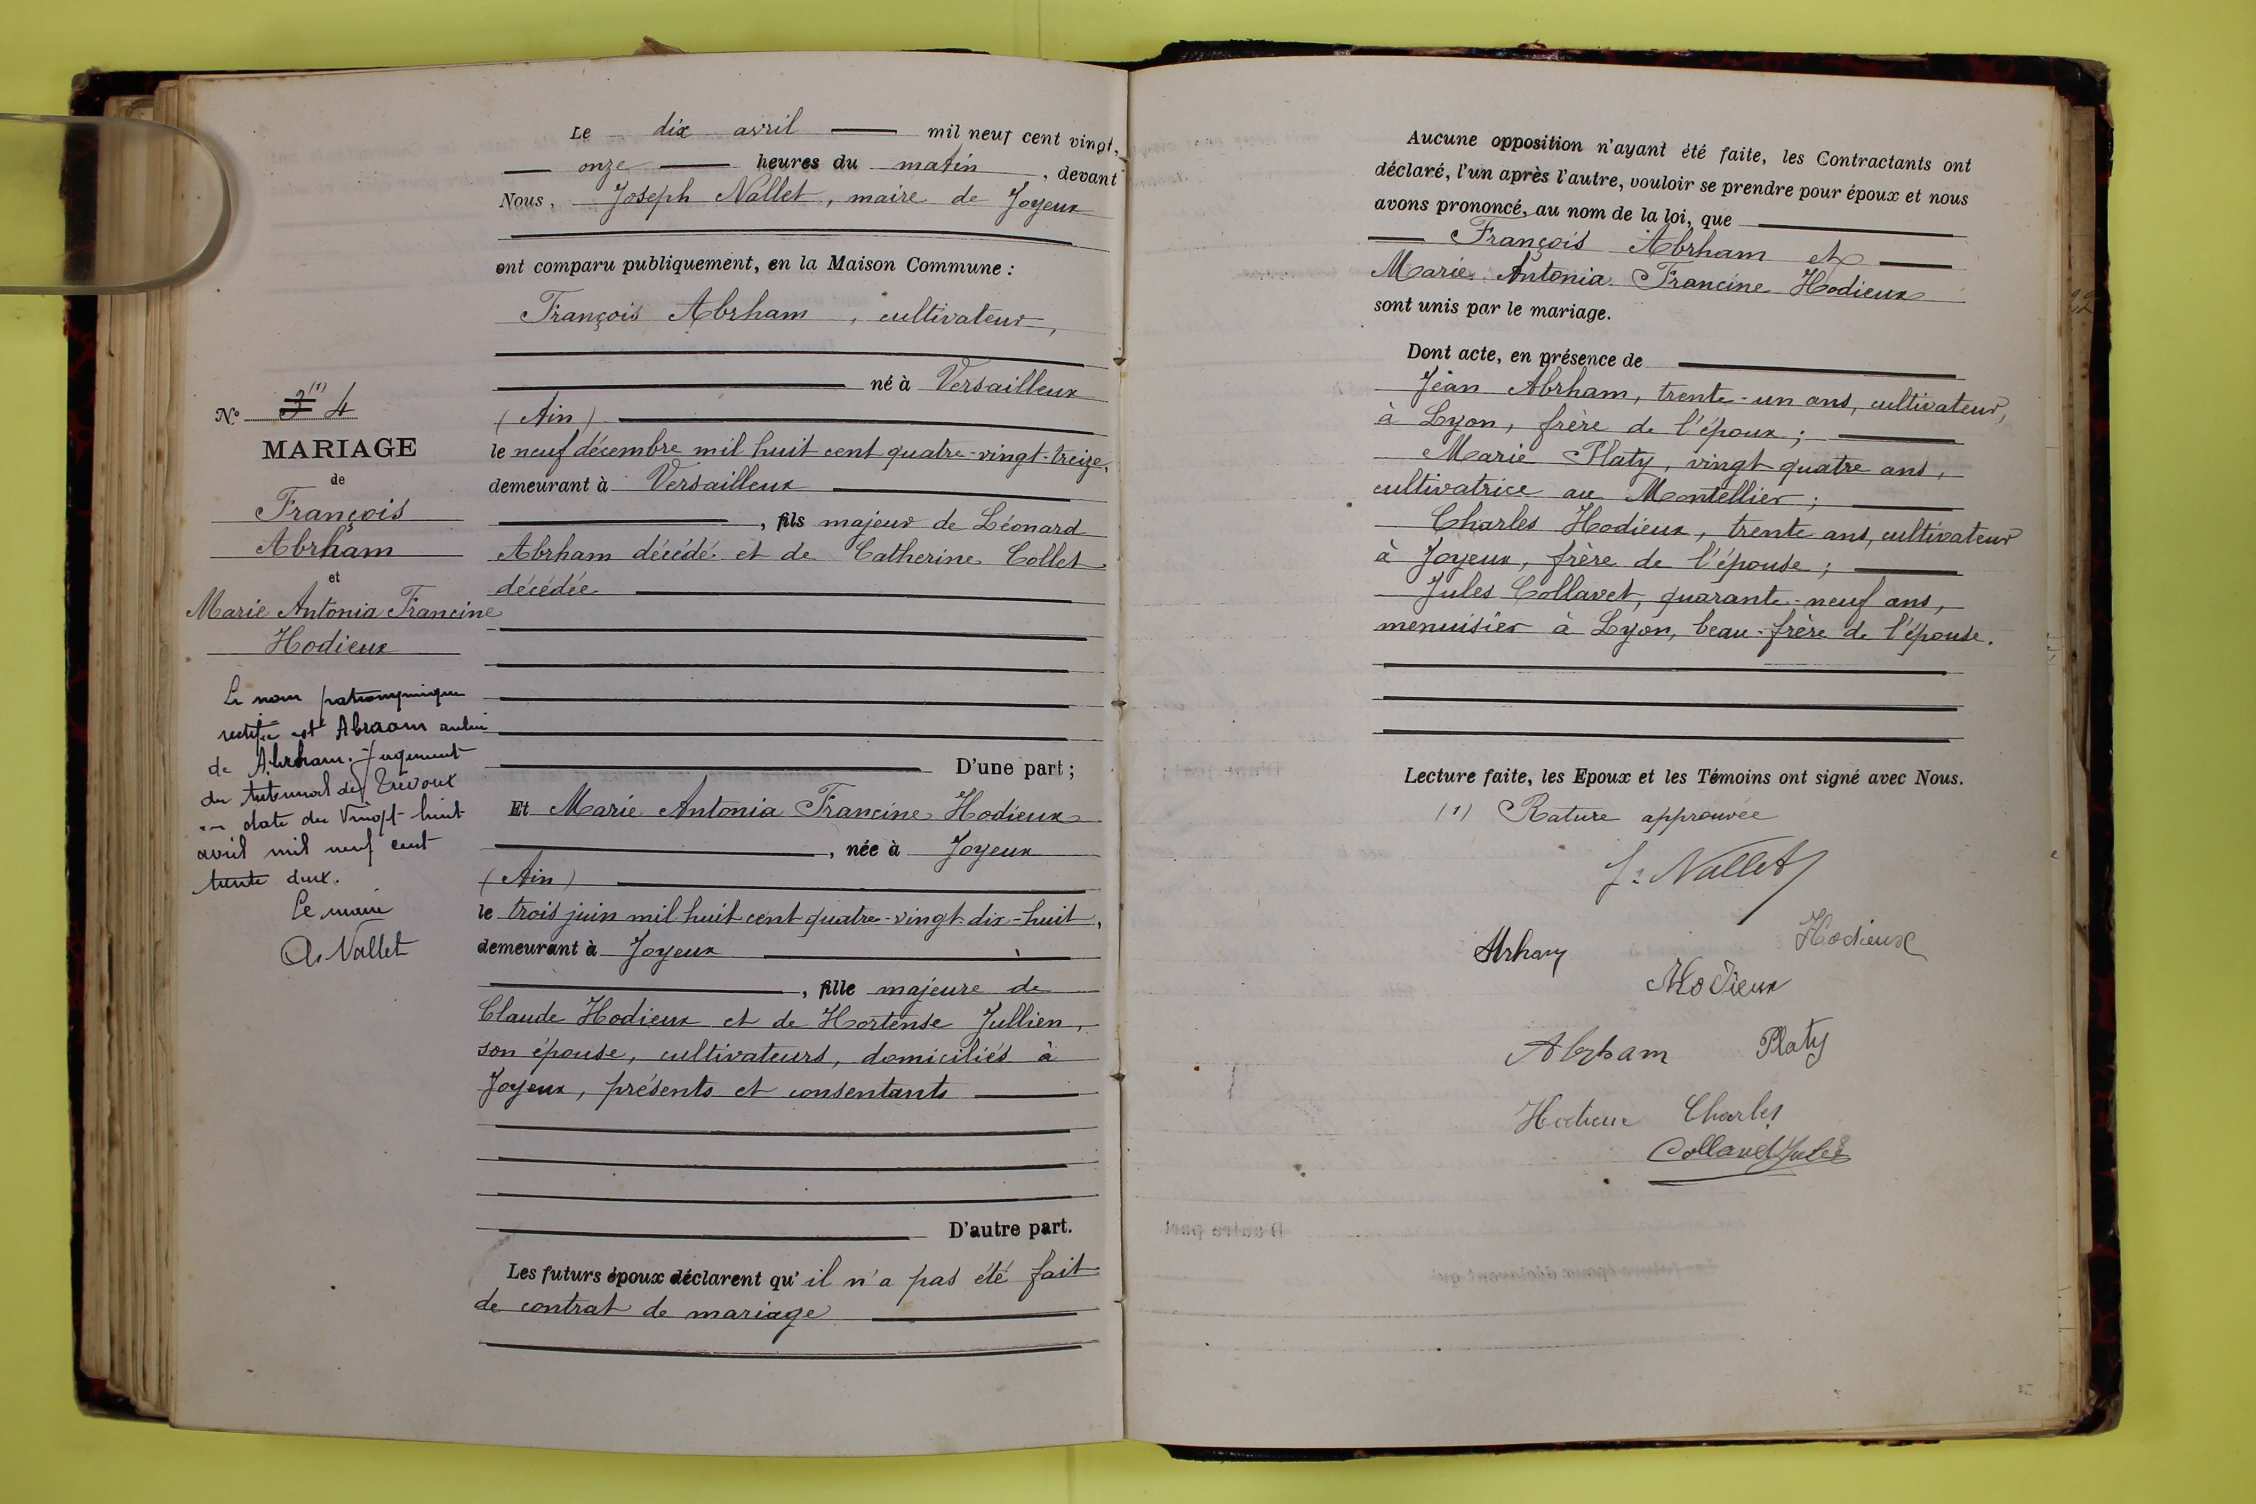 Le dix avril mil neuf cent vingt,
onze heures du matin, devant
Nous, Joseph Nallet, maire de Joyeux
ont comparu publiquement, en la Maison Commune :
François Abrham, cultivateur,
né à Versailleux
(Ain)
le neuf décembre mil huit cent quatre-vingt-treize,
demeurant à Versailleux
, fils majeur de Léonard
Abrham décédé et de Catherine Collet
décédée
D'une part ;
Et Marie Antonia Francine Hodieux
, née à Joyeux
(Ain)
le trois juin mil huit cent quatre-vingt-dix-huit,
demeurant à Joyeux
, fille majeure de
Claude Hodieux et de Hortense Jullien,
son épouse, cultivateurs, domiciliés à
Joyeux, présents et consentants
D'autre part.
Les futurs époux déclarent qu'il n'a pas été fait
de contrat de mariage
N° 3 (1) 4
MARIAGE
de
François
Abrham
et
Marie Antonia Francine
Hodieux
Le nom patronymique
rectifié est Abraam au lieu
de Abrham. Jugement
du tribunal de Trévoux
en date du Vingt-huit
avril mil neuf cent
trente deux.
Le maire
A. Nallet
Aucune opposition n'ayant été faite, les Contractants ont
déclaré, l'un après l'autre, vouloir se prendre pour époux et nous
avons prononcé, au nom de la loi, que
François Abrham et
Marie Antonia Francine Hodieux
sont unis par le mariage.
Dont acte, en présence de
Jean Abrham, trente-un ans, cultivateur,
à Lyon, frère de l'époux ;
Marie Platy, vingt quatre ans,
cultivatrice au Montellier ;
Charles Hodieux, trente ans, cultivateur
à Joyeux, frère de l'épouse ;
Jules Collavet, quarante-neuf ans,
menuisier à Lyon, beau-frère de l'épouse.
Lecture faite, les Epoux et les Témoins ont signé avec Nous.
(1) Rature approuvée
J. Nallet
Hodieux
Abrham
Hodieux
Abrham Platy
Hodieux Charles
Collavet Jules